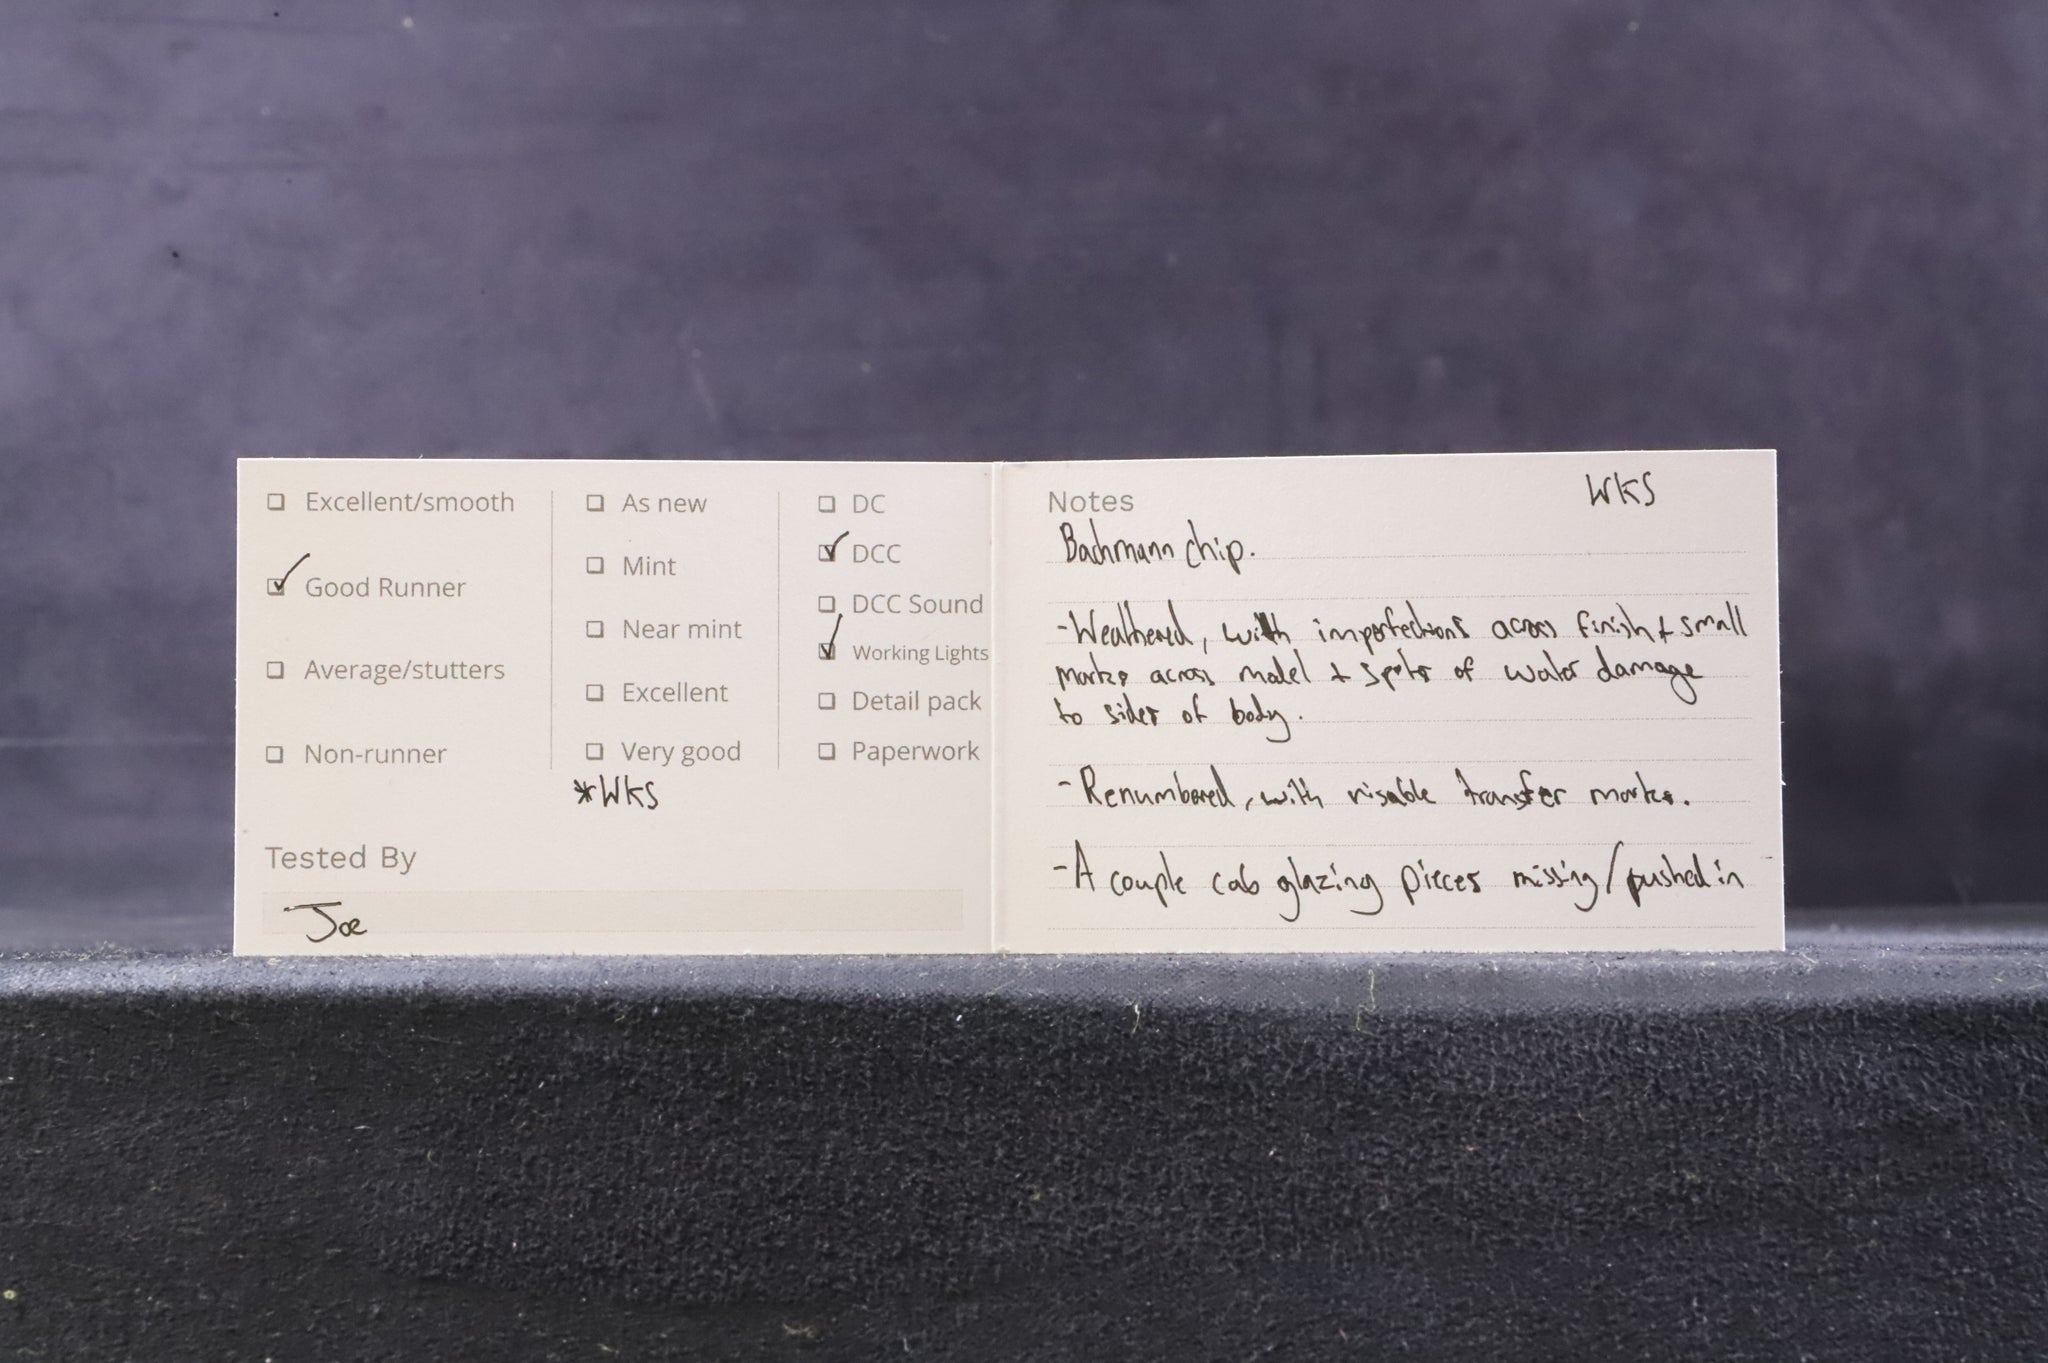 Excellent/smooth
Good Runner
Average/stutters
Non-runner
As new
Mint
Near mint
Excellent
Very good
*WKS
DC
DCC
DCC Sound
Working Lights
Detail pack
Paperwork
Tested By
Joe
Notes
WKS
Bachmann chip.
- Weathered, with imperfections across finish + small
marks across model + spots of water damage
to sides of body.
- Renumbered, with visable transfer marks.
- A couple cab glazing pieces missing/pushed in